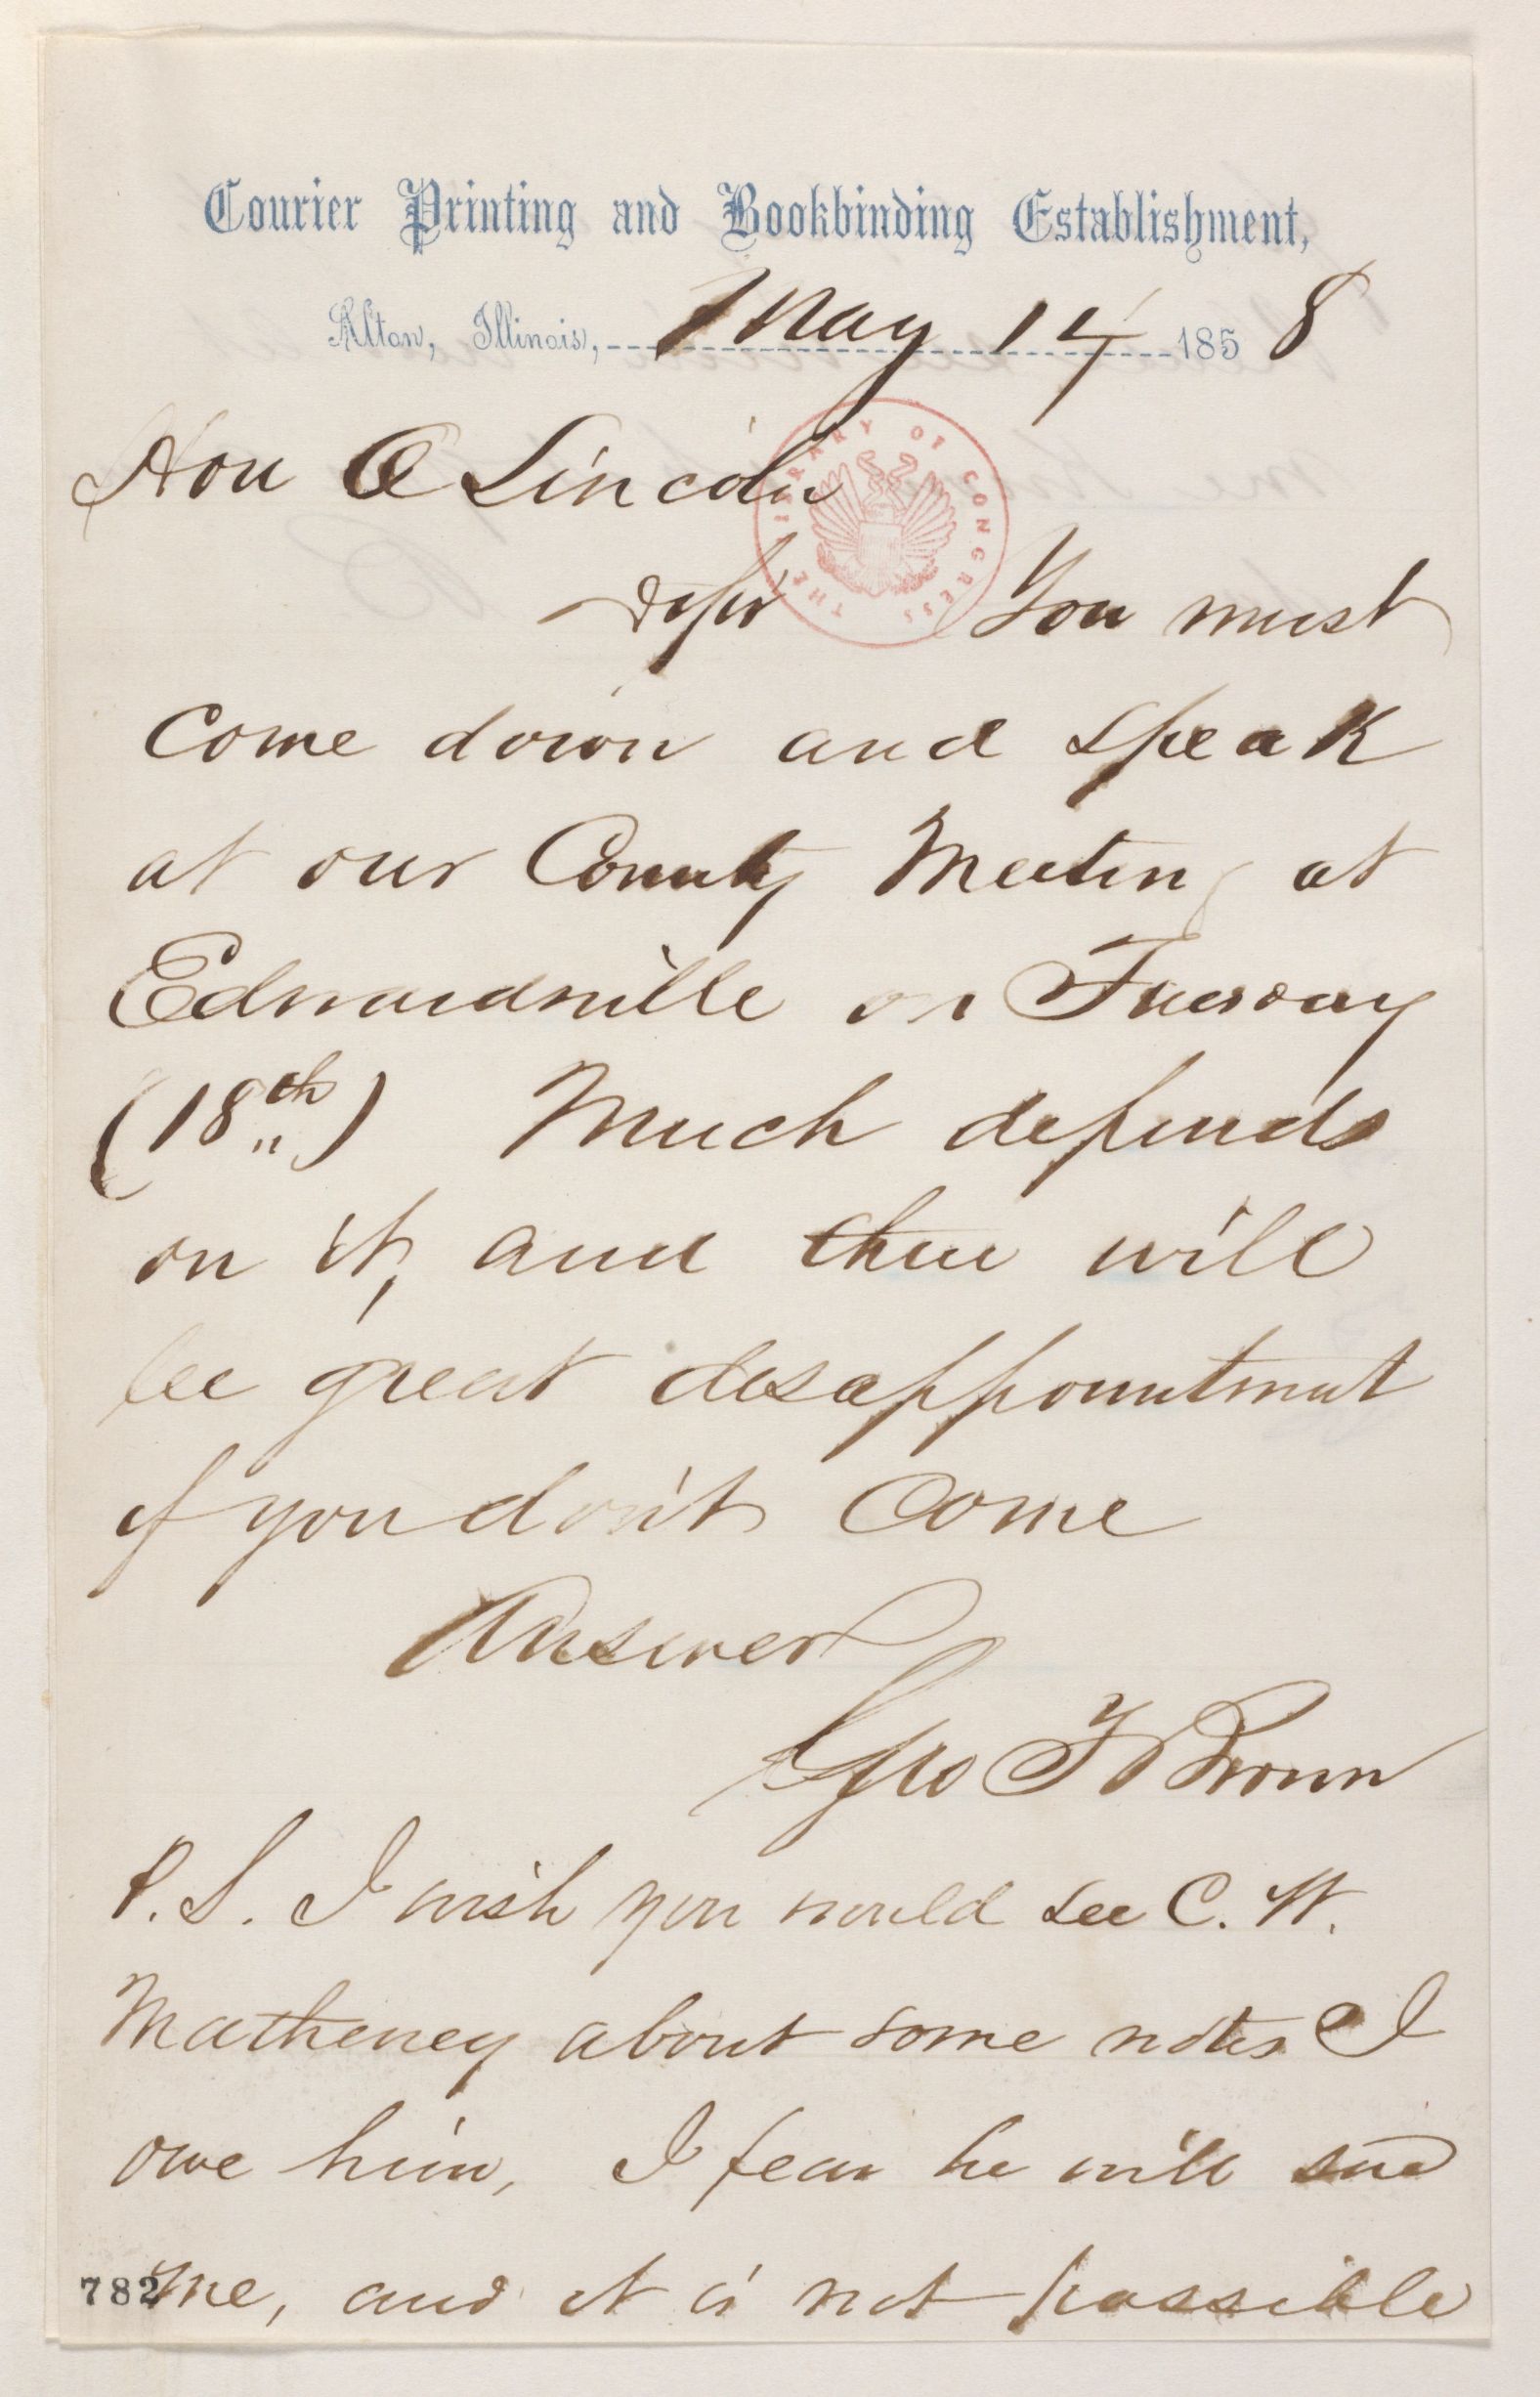 Courier Printing and Bookbinding Establishment,
Alton, Illinois, May 14 1858
Hon A Lincoln
THE LIBRARY OF CONGRESS
Dr Sir You must
Come down and speak
at our County Meeting at
Edwardsville on Tuesday
(18th) Much depends
on it, and there will
be great disappointment
if you don't Come
Answer
Geo T Brown
P.S. I wish you would see C. W.
Matheney about some notes I
owe him, I fear he will sue
782 me, and it is not possible